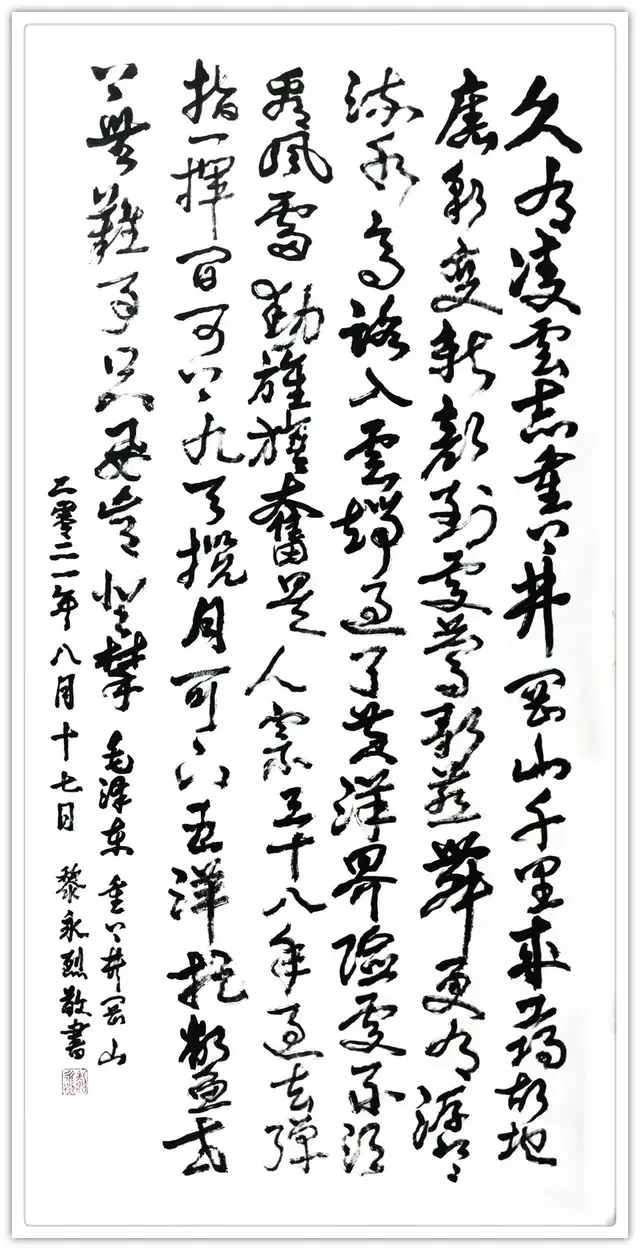 久有凌雲志重上井岡山千里來尋故地
舊貌变新顏到處鶯歌燕舞更有潺潺
流水高路入雲端過了黃洋界險處不須
看風雷動旌旗奮是人寰三十八年過去彈
指一揮間可上九天攬月可下五洋捉鱉世
上無難事只要肯登攀 毛澤東 重上井岡山
二零二一年八月十七日 黎永烈敬書